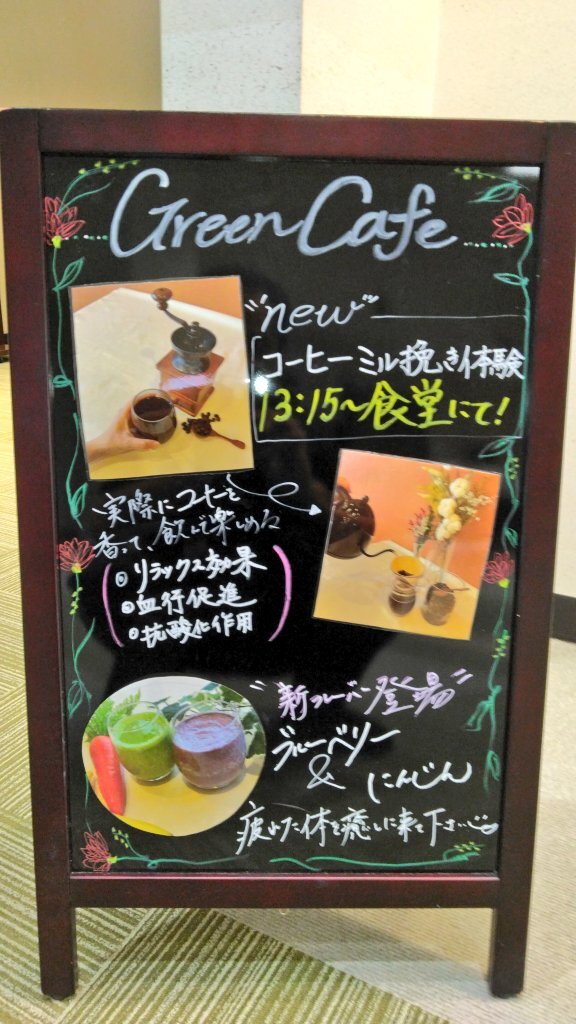 Green Cafe
"new"
コーヒーミル挽き体験
13:15〜食堂にて!
実際にコーヒーを
香って、飲んで楽しめる
◎リラックス効果
◎血行促進
◎抗酸化作用
"新フレーバー登場"
ブルーベリー
&
にんじん
疲れた体を癒しに来て下さい